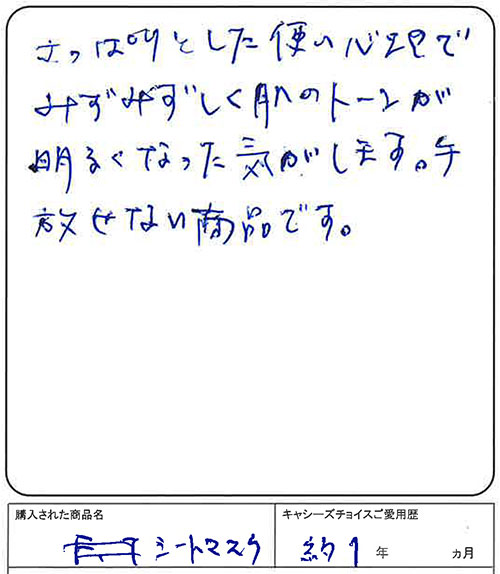 さっぱりとした使い心地で
みずみずしく肌のトーンが
明るくなった気がします。手
放せない商品です。
購入された商品名
キャシーズチョイスご愛用歴
シートマスク
約1年 ヵ月